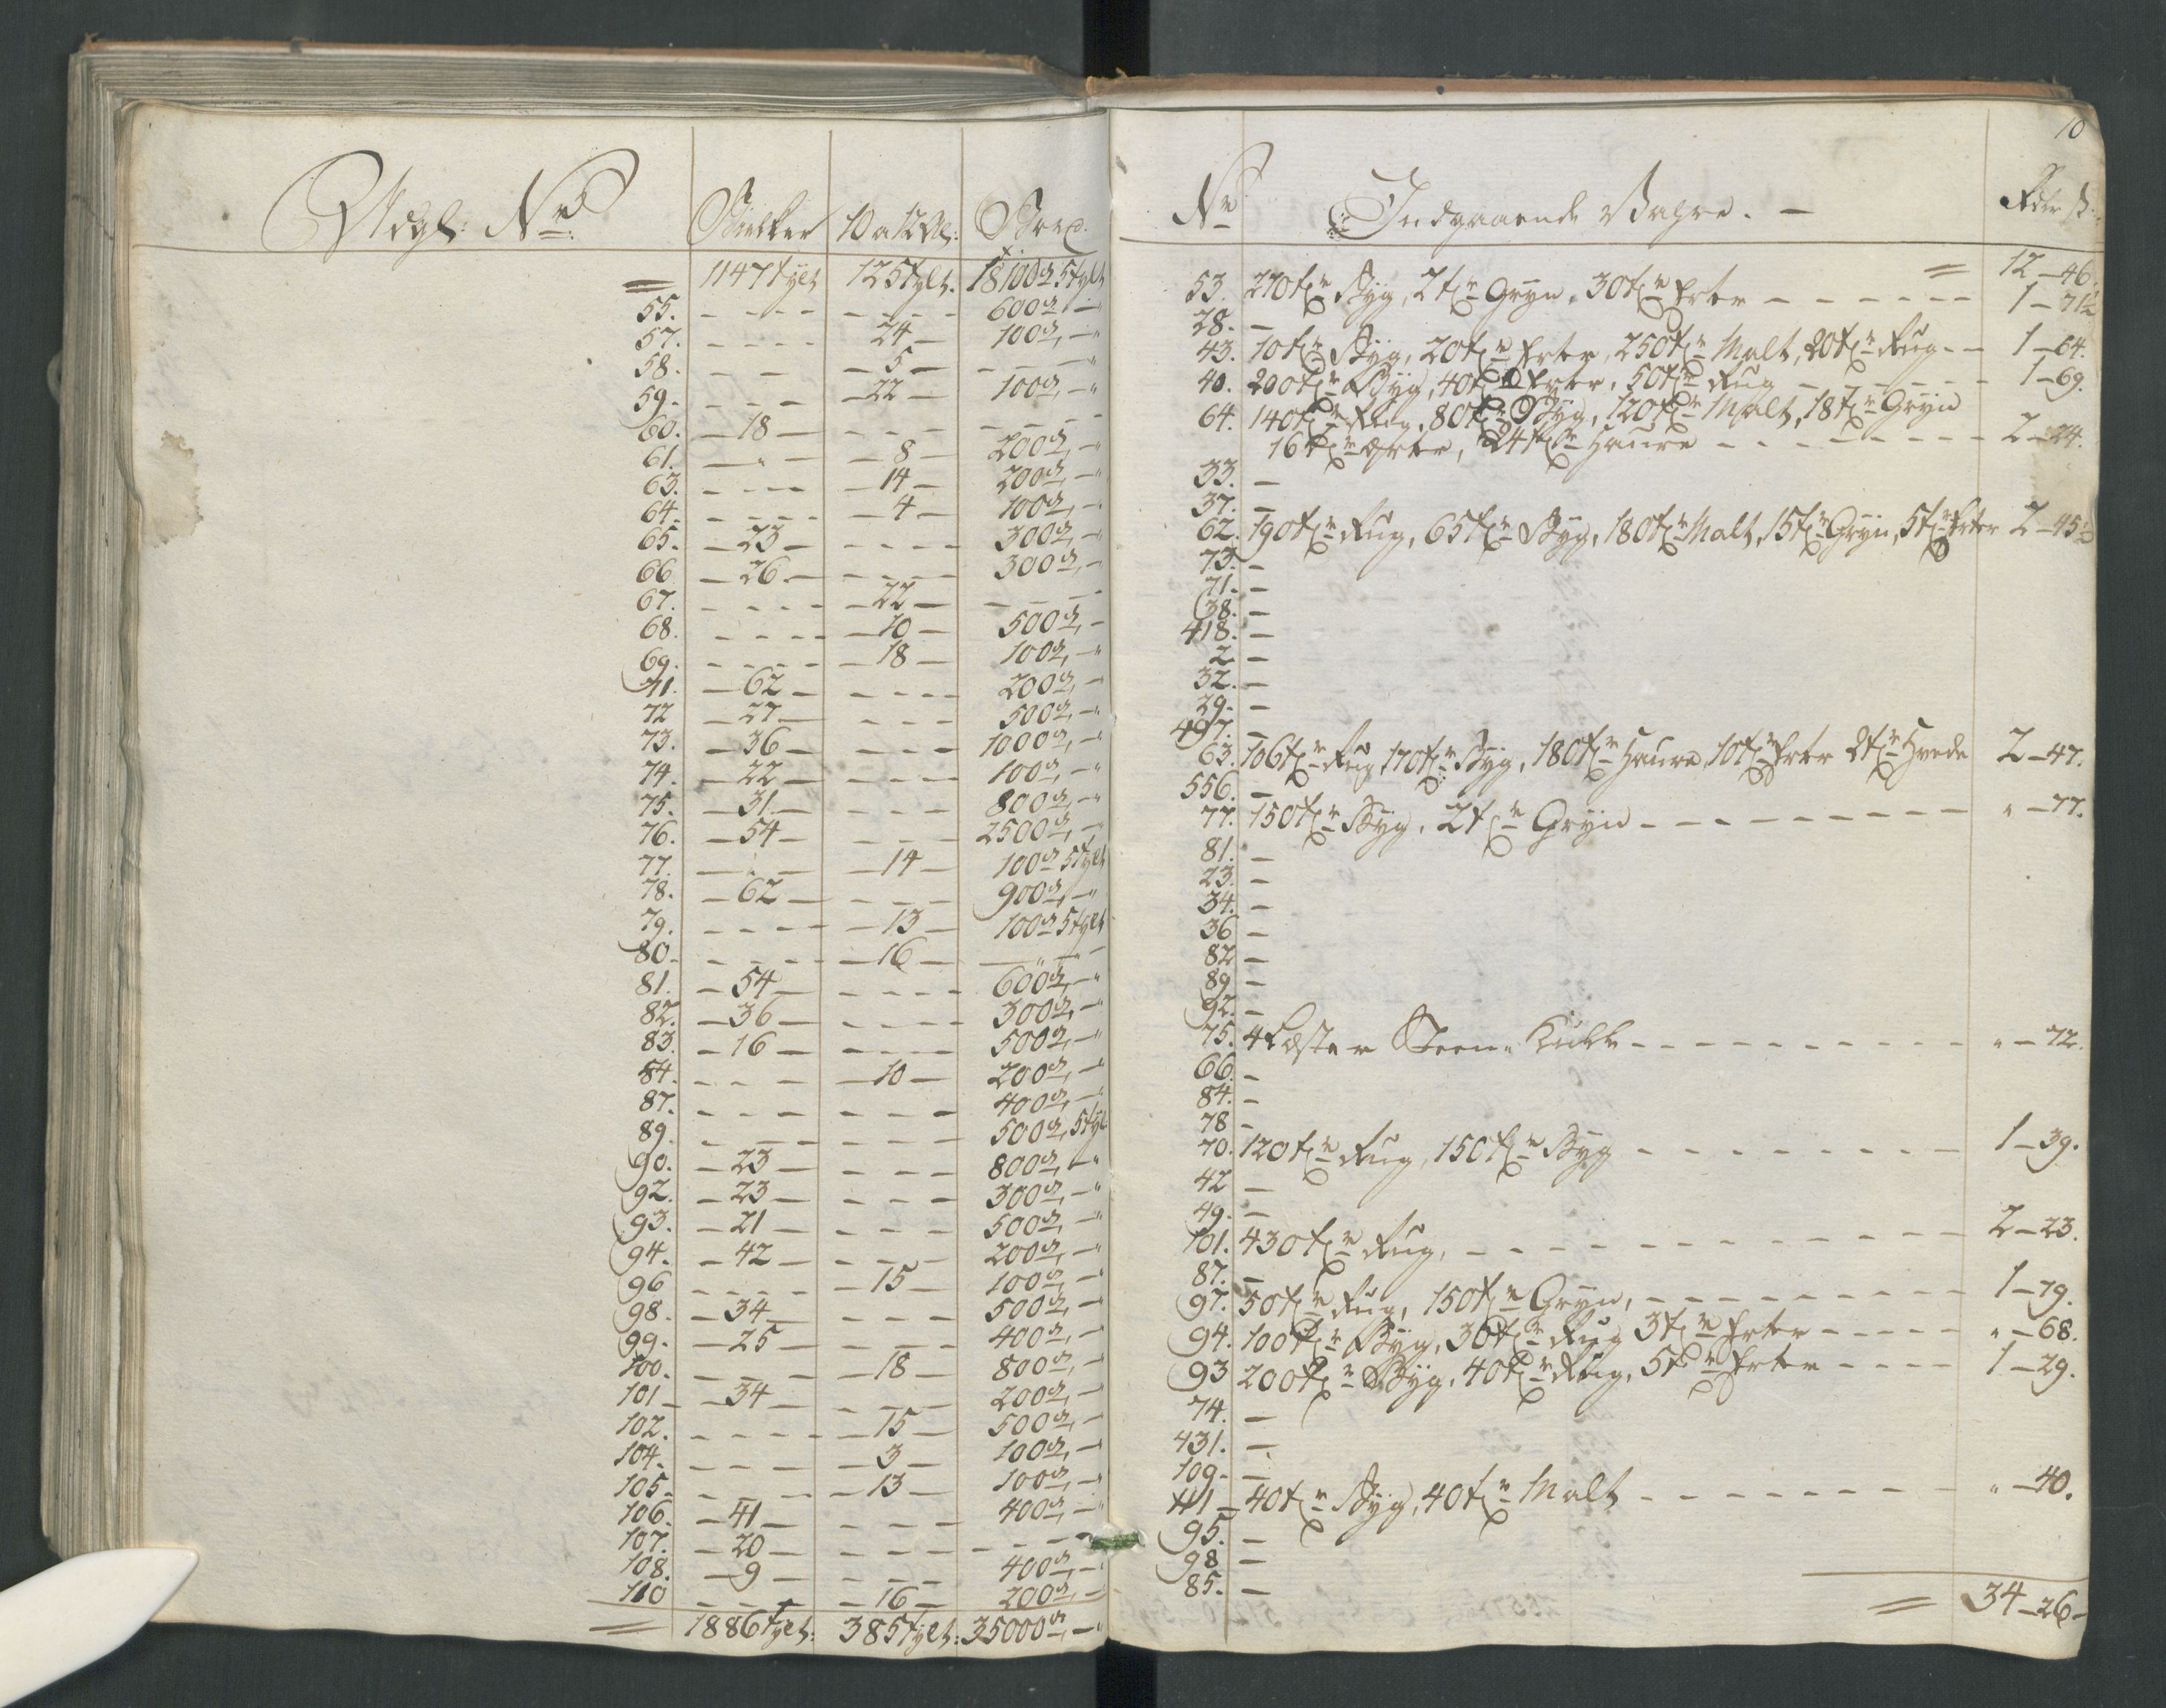 Udgl: No
Bielker 10 a 12 Al: Bord
1147 tylt 125 tylt. 18100 st 5 tylt
55. - - - - - - - - 600 st -"
57. - - - - 24 - 100 st, -"
58. - - - 5 - - - -"
59. - - - - 22 - 100 st, -"
60. - 18 - - - - - - - -
61. - " - - 8 - 200 st, -"
63. - - - - 14 - 200 st, -"
64. - - - - - 4 - 100 st, -
65. - 23 - - - - - 300 st, -
66 - 26. - - - - - 300 st, -
67. - - - - - 22 - - - -
68. - - - - - 10 - 500 st, -
69. - - - - - 18 - 100 st, -"
71. - 62 - - - - - 200 st, -
72 - 27 - - - - 500 st, -"
73. - 36 - - - - 1000 st, -"
74. - 22 - - - - 100 st, -"
75. - 31. - - - - 800 st, -"
76. - 54 - - - - 2500 st, -
77. - - - - 14 - 100 st 5 tylt
78. - 62 - - - - 900 st, -"
79. - - - - - 13 - 100 st 5 tylt
80. - - - - - 16 - - " - " -
81. - 54 - - - - - 600 st, -"
82. - 36 - - - - - 300 st, -"
83. - 16 - - - - - 500 st, -"
84. - - - - 10 - 200 st, -
87. - - - - - - - - 400 st, -"
89. - - - - - - - 500 st, 5 tyl
90. - 23 - - - - 800 st, -"
92. - 23 - - - - 300 st, -"
93. - 21 - - - - 500 st, -"
94. - 42 - - - - 200 st, -"
96 - - - - - 15 - 100 st, -
98. - 34 - - - - 500 st, -
99. - 25 - - - - 400 st, -
100. - - - - 18 - 800 st, -
101 - - 34 - - - - 200 st, -
102. - - - - - 15 - 500 st, -
104. - - - - 3 - 100 st, -
105. - - - - 13 - 100 st, -
106. - 41 - - - - 400 st, -
107. - 20 - - - - - - - -
108. - 9 - - - - 400 st, -
110 - - - - - 16 - 200 st, -
1886 tylt: 385 tylt: 35000 st, -"
10
No Indgaaende Vahre. - Rdr s:
12 - 46.
53. 270 tr Byg, 2 tr Gryn, 30 tr Erter - - - - - - 1 - 71½
28. -
43. 10 tr Byg, 20 tr Erter, 250 tr Malt, 20 tr Rug - - 1 - 64.
40. 200 tr Byg, 40 tr Erter, 50 tr Rug - - - - - - 1 - 69.
64. 140 tr Rug, 80 tr Byg, 120 tr Malt, 18 tr Gryn
16 tr Erter, 24 tr Haure - - - - - - - - - 2 - 24.
33. -
37. -
62. 190 tr Rug, 65 tr Byg, 180 tr Malt, 15 tr Gryn, 5 tr Erter 2 - 45½
73. -
71. -
38. -
418. -
2 -
32. -
29. -
497. -
63. 106 tr Rug, 170 tr Byg, 180 tr Haure, 10 tr Erter 2 tr Hvede 2 - 47.
556. -
77. 150 tr Byg, 2 tr Gryn - - - - - - - - - " - 77.
81. -
23. -
34. -
36 -
82 -
89 -
92. -
75. 4 Læster Steen Kull - - - - - - - - - - - " - 72.
66. -
84. -
78 -
70. 120 tr Rug, 150 tr Byg - - - - - - - - - 1 - 39.
42 -
49. -
101. 430 tr Rug, - - - - - - - - - - - - 2 - 23.
87. -
97. 50 tr Rug, 150 tr Gryn, - - - - - - - - - - 1 - 79.
94. 100 tr Byg, 30 tr Rug 3 tr Erter - - - - - " - 68.
93 200 tr Byg, 40 tr Rug, 5 tr Erter - - - - 1 - 29.
74. -
431. -
109. -
111 - 40 tr Byg, 40 tr Malt - - - - - - - - " - 40.
95. -
98 -
85. -
34 - 26 -